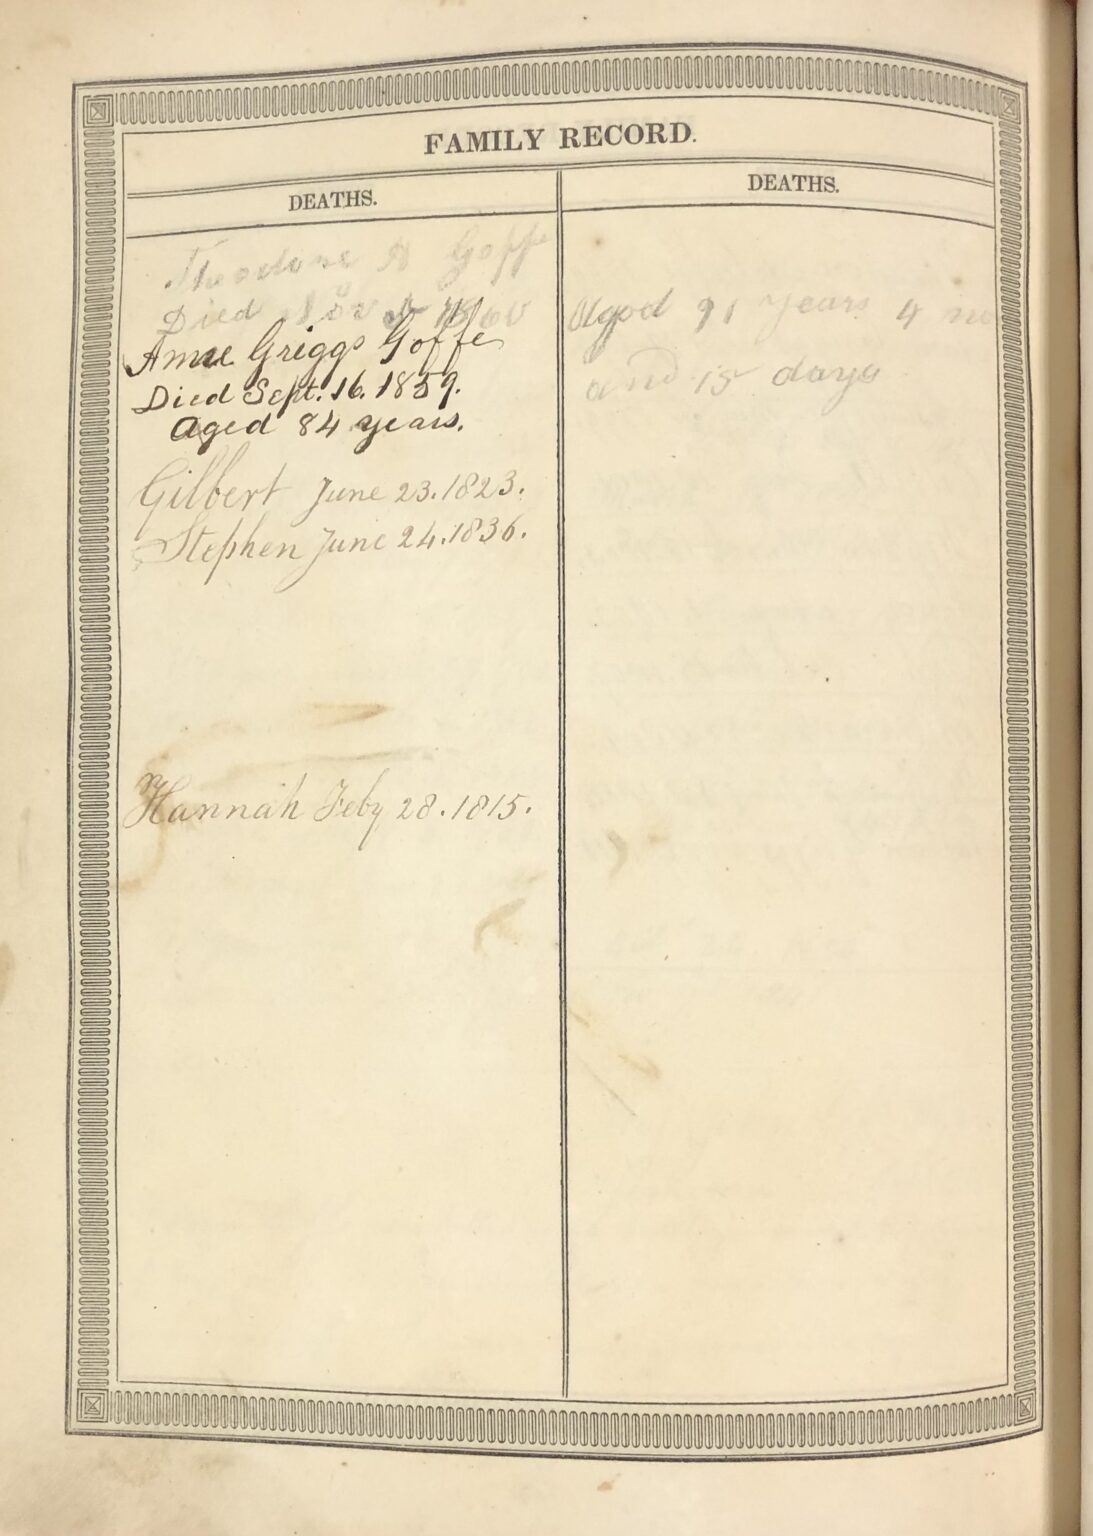 FAMILY RECORD.
DEATHS.
Theodore A Goffe
Died Nov 1860
Anne Griggs Goffe
Died Sept. 16. 1859.
Aged 84 years.
Gilbert June 23. 1823.
Stephen June 24. 1836.
Hannah Feby 28. 1815.
DEATHS.
Aged 91 years 4 mo
and 15 days